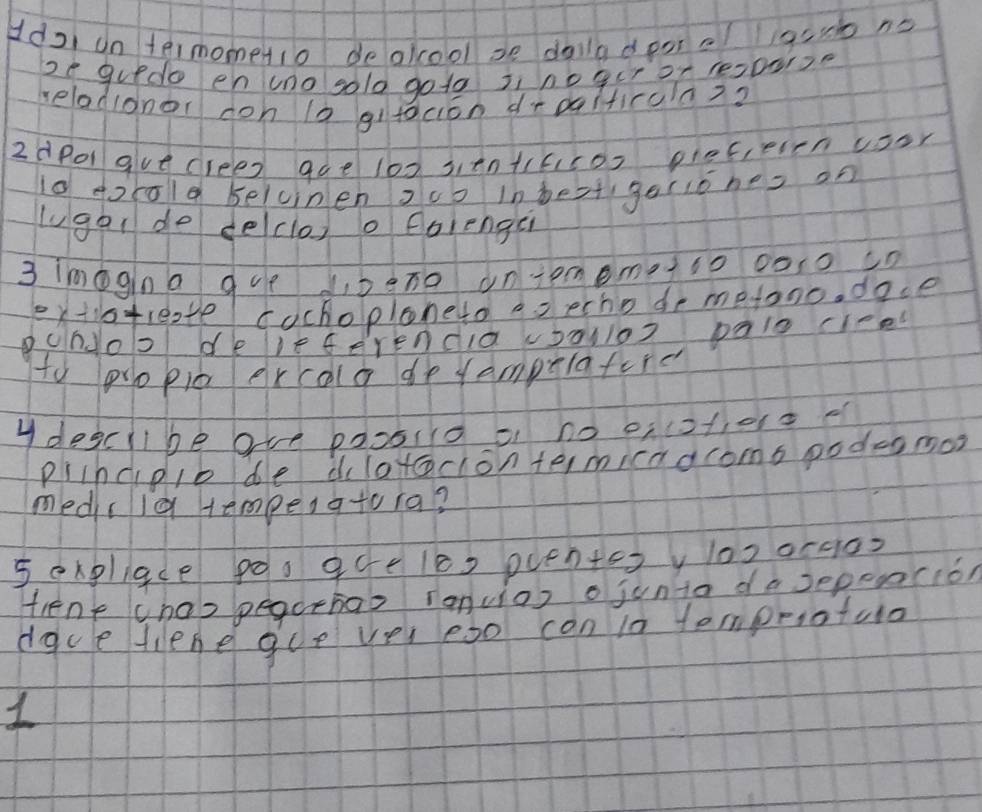 1 d si un termometro de alcool se daña d por el liquido no
se quedo en una sola gota si no que or
relacionar con la gitacion de particula s?
2 d Por que crees que los sientificos prefieren usar
la escala kelvinen sus inbestigaciónes en
lugar de celcios o farenga
3 imagina que diseño un temometro para un
extratieste cuchoplaneta es echo de metano. dace
puntos de referencia usarios para cree
tu propia escala de temperatura
4 describe que pasaria si no existiera el
principio de dilatación termica d como podesmos
medir la temperatura?
5 explique por que los puentes y los arcos
tiene unas pequeñas ranuras o junta de seperación
d que tiene que ver eso con la temperatura
1